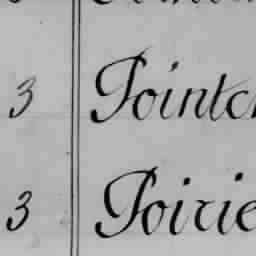 3 Pointc
3 Poirie